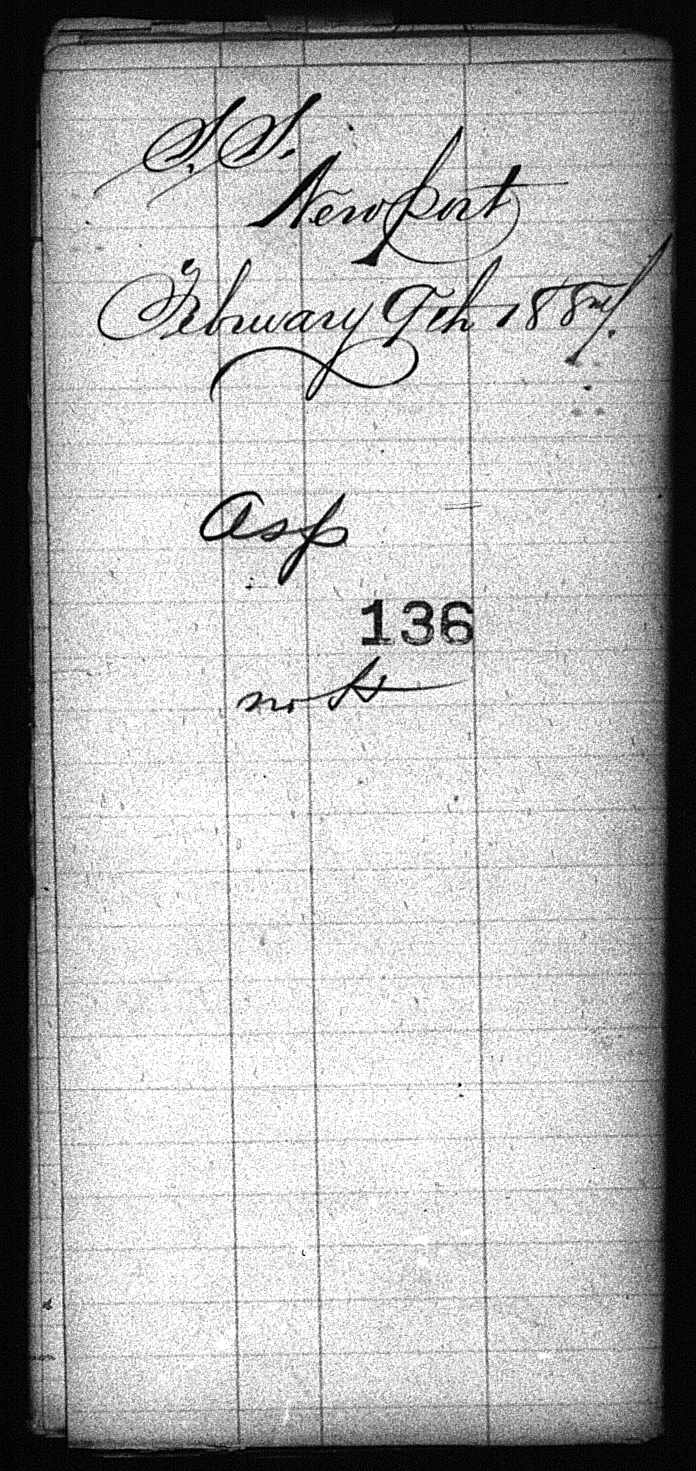 S.S.
Newport
February 9th 1884.
Asp
136
no H